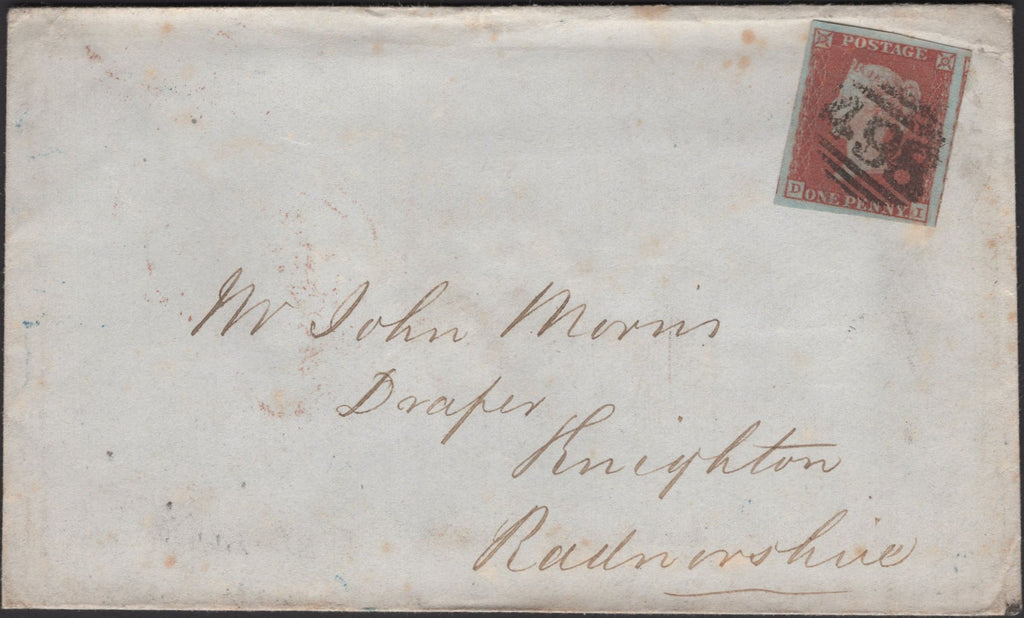 POSTAGE
498
D ONE PENNY I
Mr John Morris
Draper
Knighton
Radnorshire